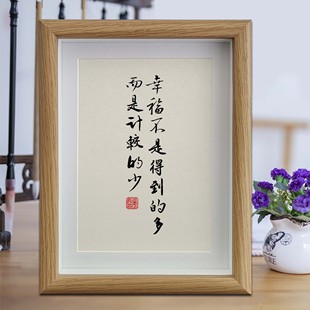 幸福不是得到的多
而是计较的少